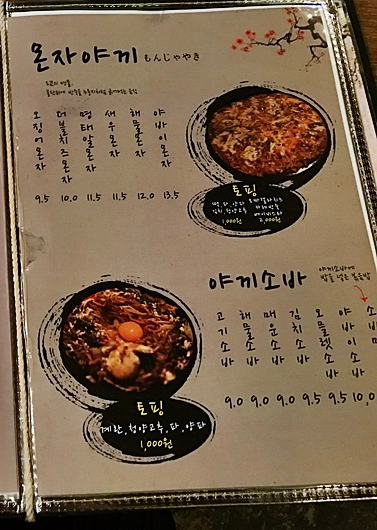 몬자야끼 もんじゃやき
오징어몬자
더블치즈몬자
명태알몬자
새우몬자
해물몬자
야바이몬자
9.5 10.0 11.5 11.5 12.0 13.5
토핑
1,000원 2,000원
야끼소바
야끼소바에
밥을 넣은 볶음밥
고기소바
해물소바
매운소바
김치소바
오믈렛소바
야바이소바
소바
9.0 9.0 9.0 9.5 9.5 10,0
토핑
계란, 청양고추, 파, 양파
1,000원